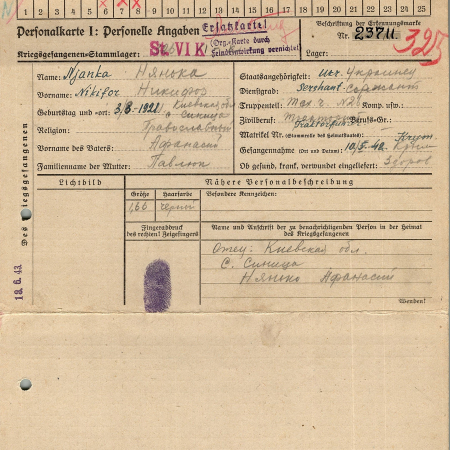 1 2 3 4 5 6 7 8 9 10 11 12 13 14 15 16 17 18 19 20 21 22 23 24 25
Personalkarte I: Personelle Angaben
Ersatzkarte!
(Org.-Karte durch
Feindeinwirkung vernichtet)
Kriegsgefangenen-Stammlager: St. VI K
Beschriftung der Erkennungsmarke
Nr. 23711
325
Lager:
Des Kriegsgefangenen
Name: Njanka Нянька
Vorname: Nikifor Никифор
Geburtstag und -ort: 3/8-1922 Киевская обл
с Синица
Religion: Православный
Vorname des Vaters: Афанасий
Familienname der Mutter: Павлюк
Staatsangehörigkeit: Ukr. Украинец
Dienstgrad: Serchant- сержант
Truppenteil: Komp. usw.:
Zivilberuf: Berufs-Gr.:
Matrikel Nr. (Stammrolle des Heimatstaates):
Gefangennahme (Ort und Datum): 10/5-42 Krim Крым
Ob gesund, krank, verwundet eingeliefert: Здоров
Lichtbild
Nähere Personalbeschreibung
Größe Haarfarbe Besondere Kennzeichen:
1,66 черный
Fingerabdruck
des rechten! Zeigefingers
Name und Anschrift der zu benachrichtigenden Person in der Heimat
des Kriegsgefangenen
Отец: Киевская обл.
с. Синица
Нянько Афанасий
Wenden!
18.6.43